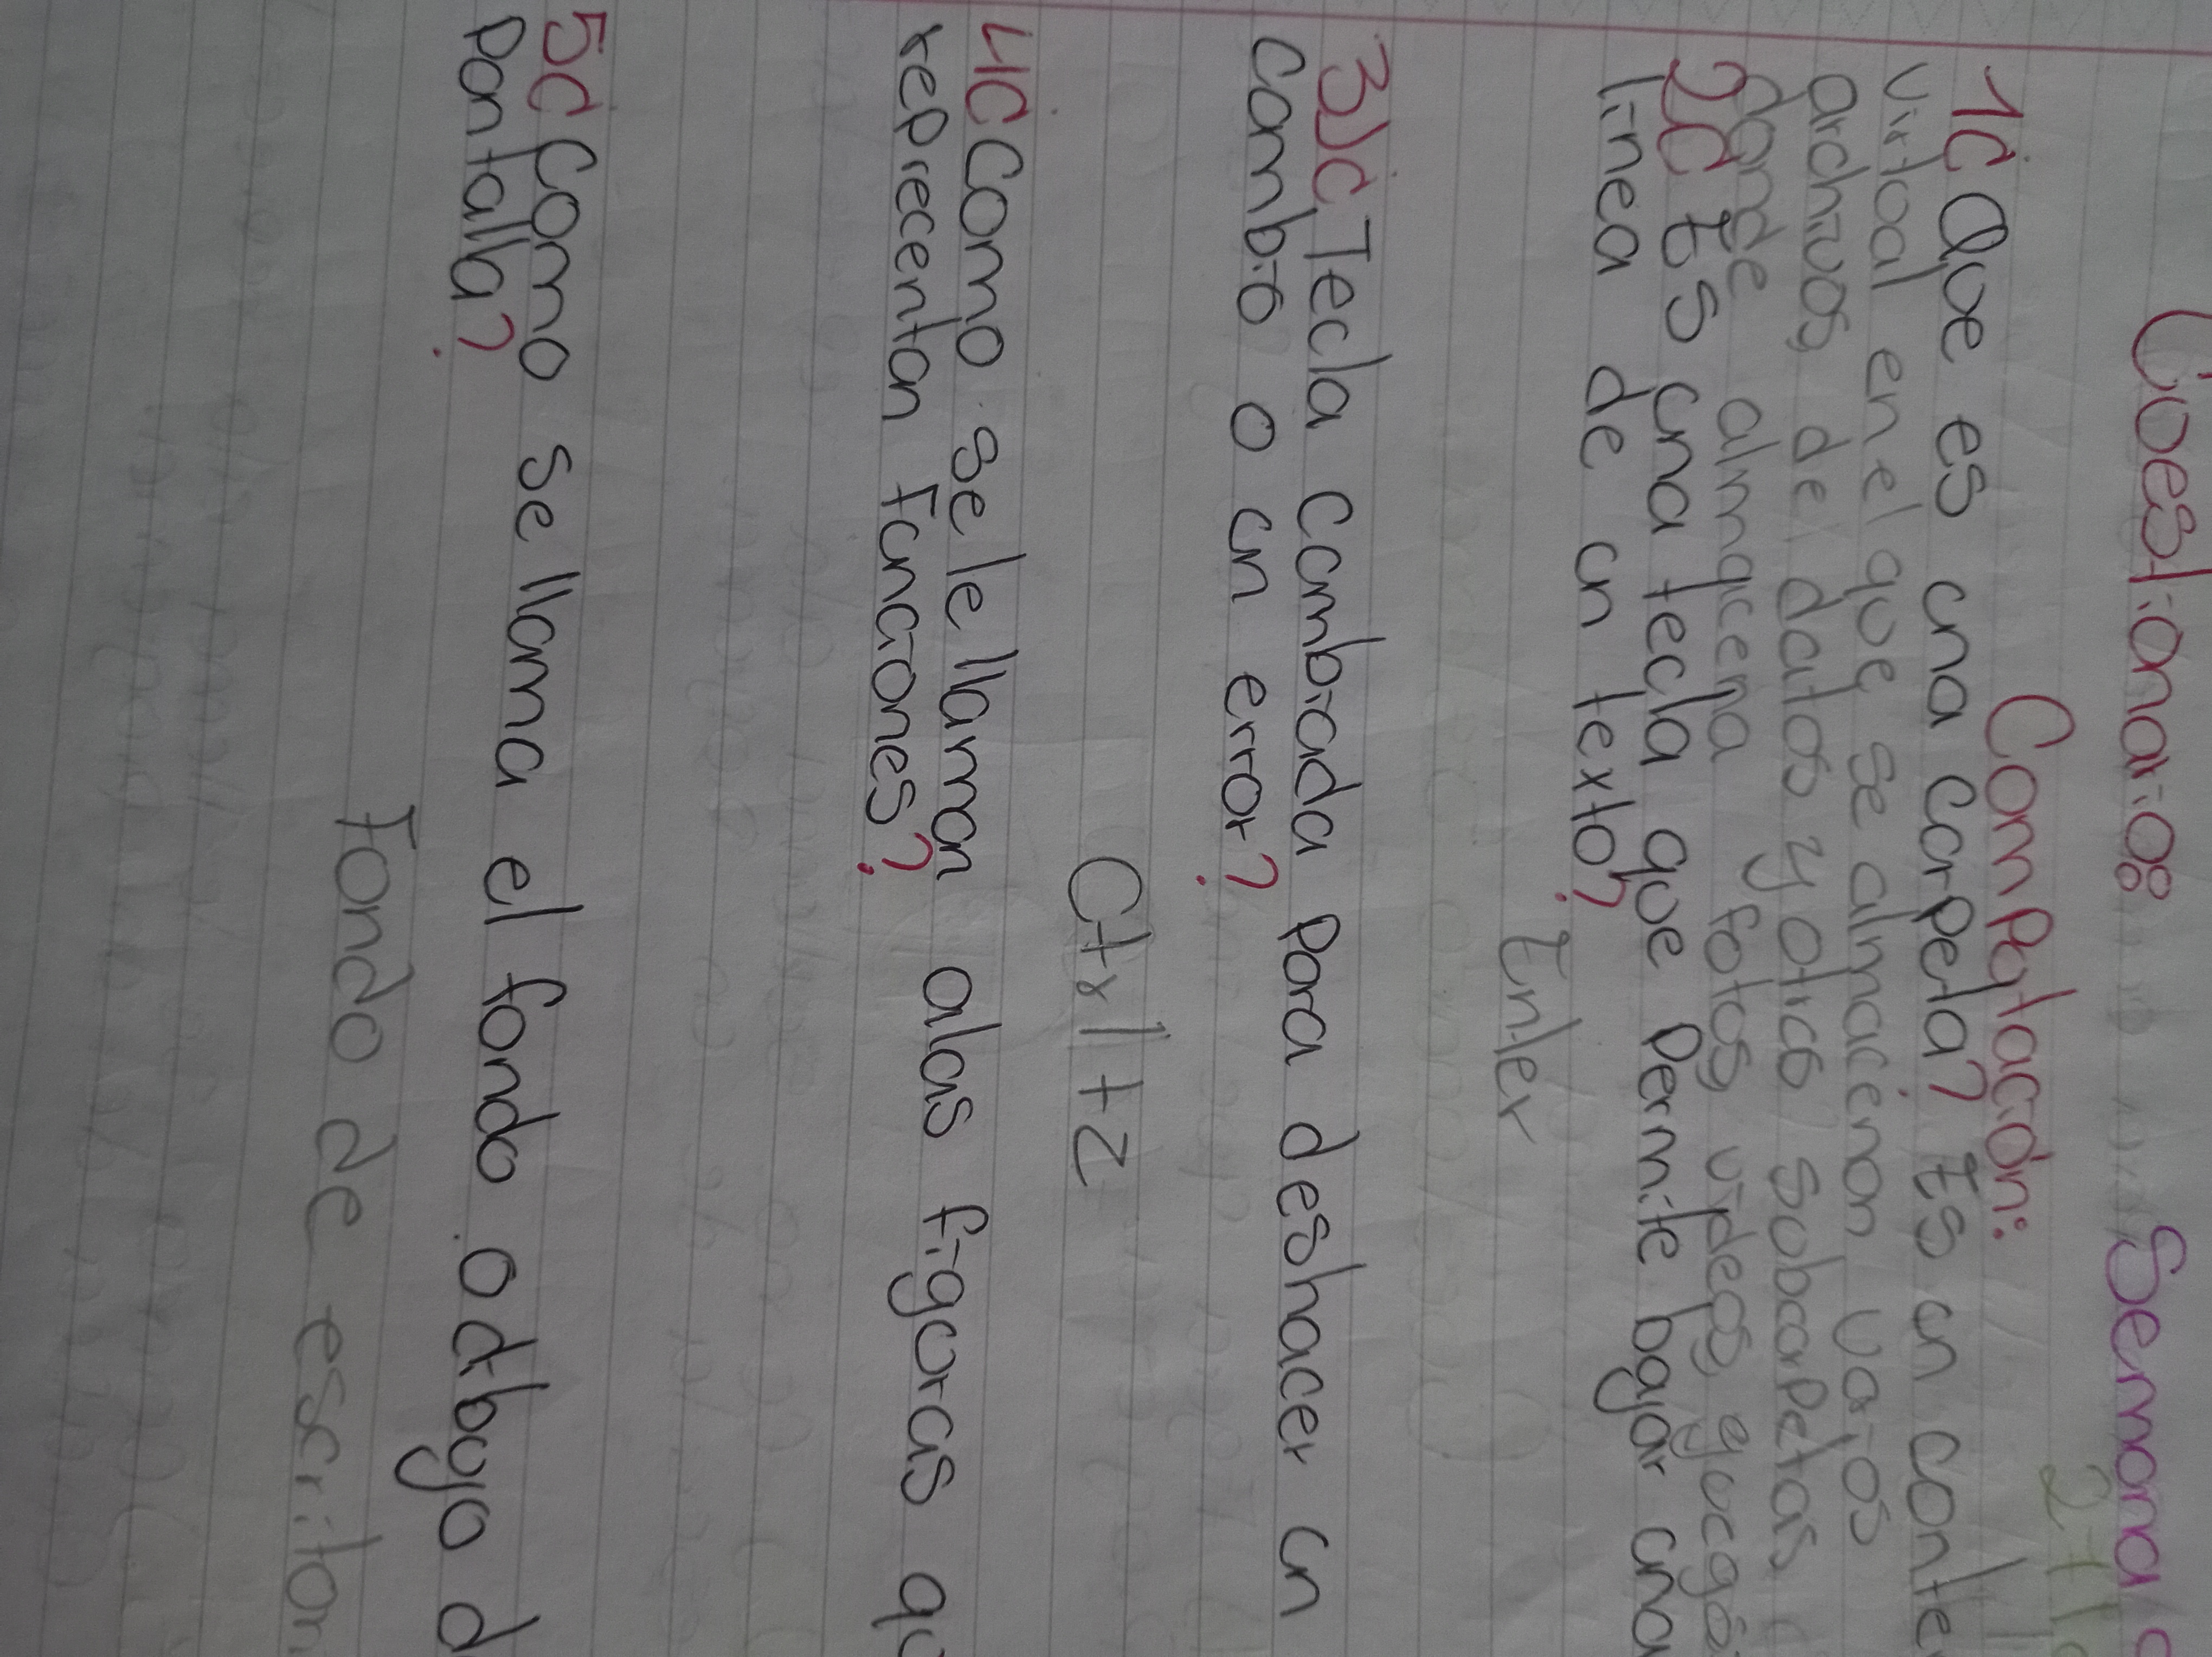 Cuestionario: Semana
Computación:
1¿Que es una carpeta? Es un conte
virtual en el que se almacenan varios
archivos de datos y otras subcarpetas
donde almacena fotos videos juegos
2¿Es una tecla que Permite bajar una
linea de un texto?
Enter
3)¿Tecla combiada para deshacer un
cambio o un error?
Ctrl+z
4¿Como se le llaman alas figuras qu
reprecentan Funciones?
5¿Como se llama el fondo o dibujo d
pantalla?
Fondo de escritor